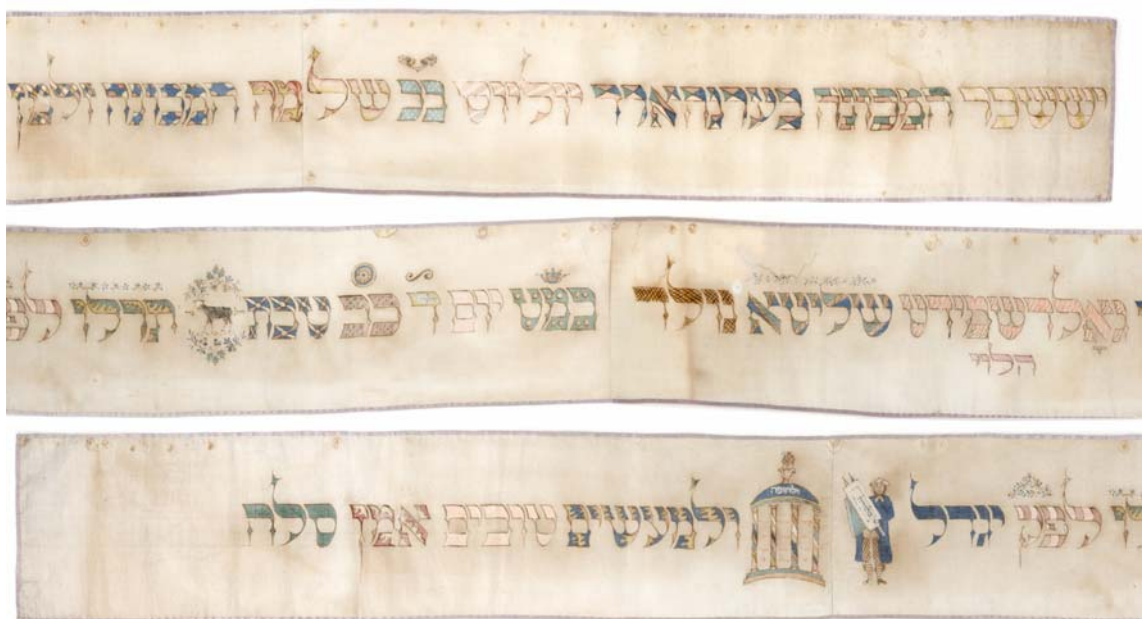 יששכר המכונה בערנהארד יוליוש בב שלמה המכונה זלמן
גאלדשמידט שליטא נולד במט יום ד כב טבת תרלו
הלוי
לפק יגדל ולחופה ולמעשים טובים אמן סלה